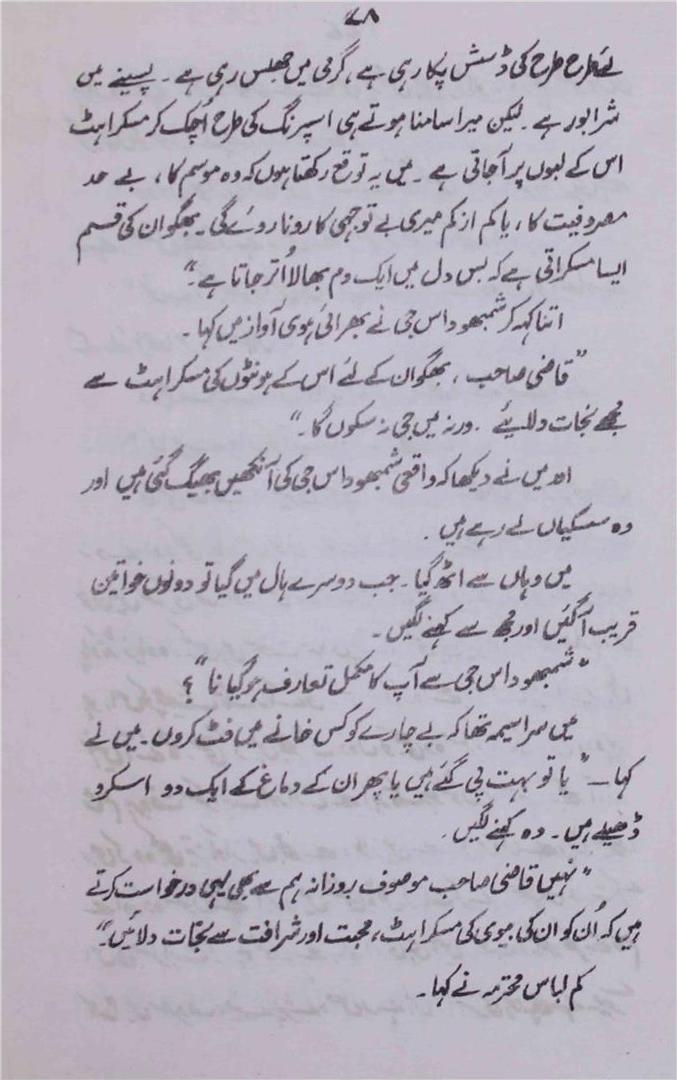 ۷۸
لئے طرح طرح کی ڈشش پکا رہی ہے، گرمی میں جھلس رہی ہے ۔ پسینے میں
شرابور ہے ۔ لیکن میرا سامنا ہوتے ہی اسپرنگ کی طرح اُچک کر مسکراہٹ
اس کے لبوں پر آجاتی ہے ۔ میں یہ توقع رکھتا ہوں کہ وہ موسم کا ، بے حد
مصروفیت کا ، یا کم از کم میری بے توجہی کا رونا روئے گی ۔ بھگوان کی قسم
ایسا مسکراتی ہے کہ بس دل میں ایک دم بھالا اُتر جاتا ہے ۔"
اتنا کہہ کر شمبھوداس جی نے بھرائی ہوی آواز میں کہا ۔
"قاضی صاحب ، بھگوان کے لئے اس کے ہونٹوں کی مسکراہٹ سے
مجھے نجات دلائیے ۔ ورنہ میں جی نہ سکوں گا ۔"
اور میں نے دیکھا کہ واقعی شمبھوداس جی کی آنکھیں بھیگ گئی ہیں اور
وہ سسکیاں لے رہے ہیں ۔
میں وہاں سے اٹھ گیا ۔ جب دوسرے ہال میں گیا تو دونوں خواتین
قریب آگئیں اور مجھ سے کہنے لگیں ۔
"شمبھوداس جی سے آپ کا مکمل تعارف ہوگیا نا" ؟
میں سراسیمہ تھا کہ بے چارے کو کس خانے میں فٹ کروں ۔ میں نے
کہا ۔ " یا تو بہت پی گئے ہیں یا پھر ان کے دماغ کے ایک دو اسکرو
ڈھیلے ہیں ۔ وہ کہنے لگیں ۔
"نہیں قاضی صاحب موصوف روزانہ ہم سے بھی یہی درخواست کرتے
ہیں کہ اُن کو ان کی بیوی کی مسکراہٹ ، محبت اور شرافت سے نجات دلائیں ۔"
کم لباس محترمہ نے کہا ۔